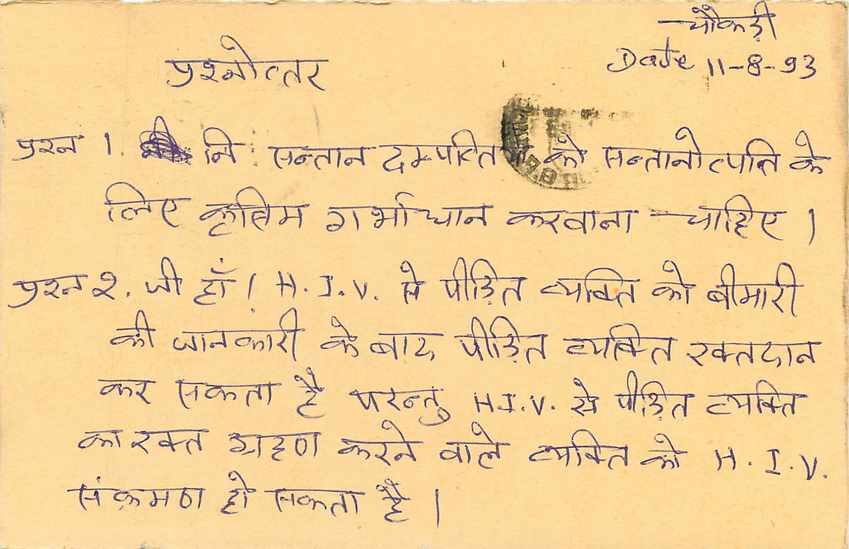 चौकड़ी
Date 11-8-93
प्रश्नोत्तर
प्रश्न 1. नि सन्तान दम्पत्ति को सन्तानोत्पत्ति के
लिए कृत्रिम गर्भाधान करवाना चाहिए।
प्रश्न २. जी हाँ। H.I.V. से पीड़ित व्यक्ति को बीमारी
की जानकारी के बाद पीड़ित व्यक्ति रक्तदान
कर सकता है परन्तु H.I.V. से पीड़ित व्यक्ति
का रक्त ग्रहण करने वाले व्यक्ति को H.I.V.
संक्रमण हो सकता है।